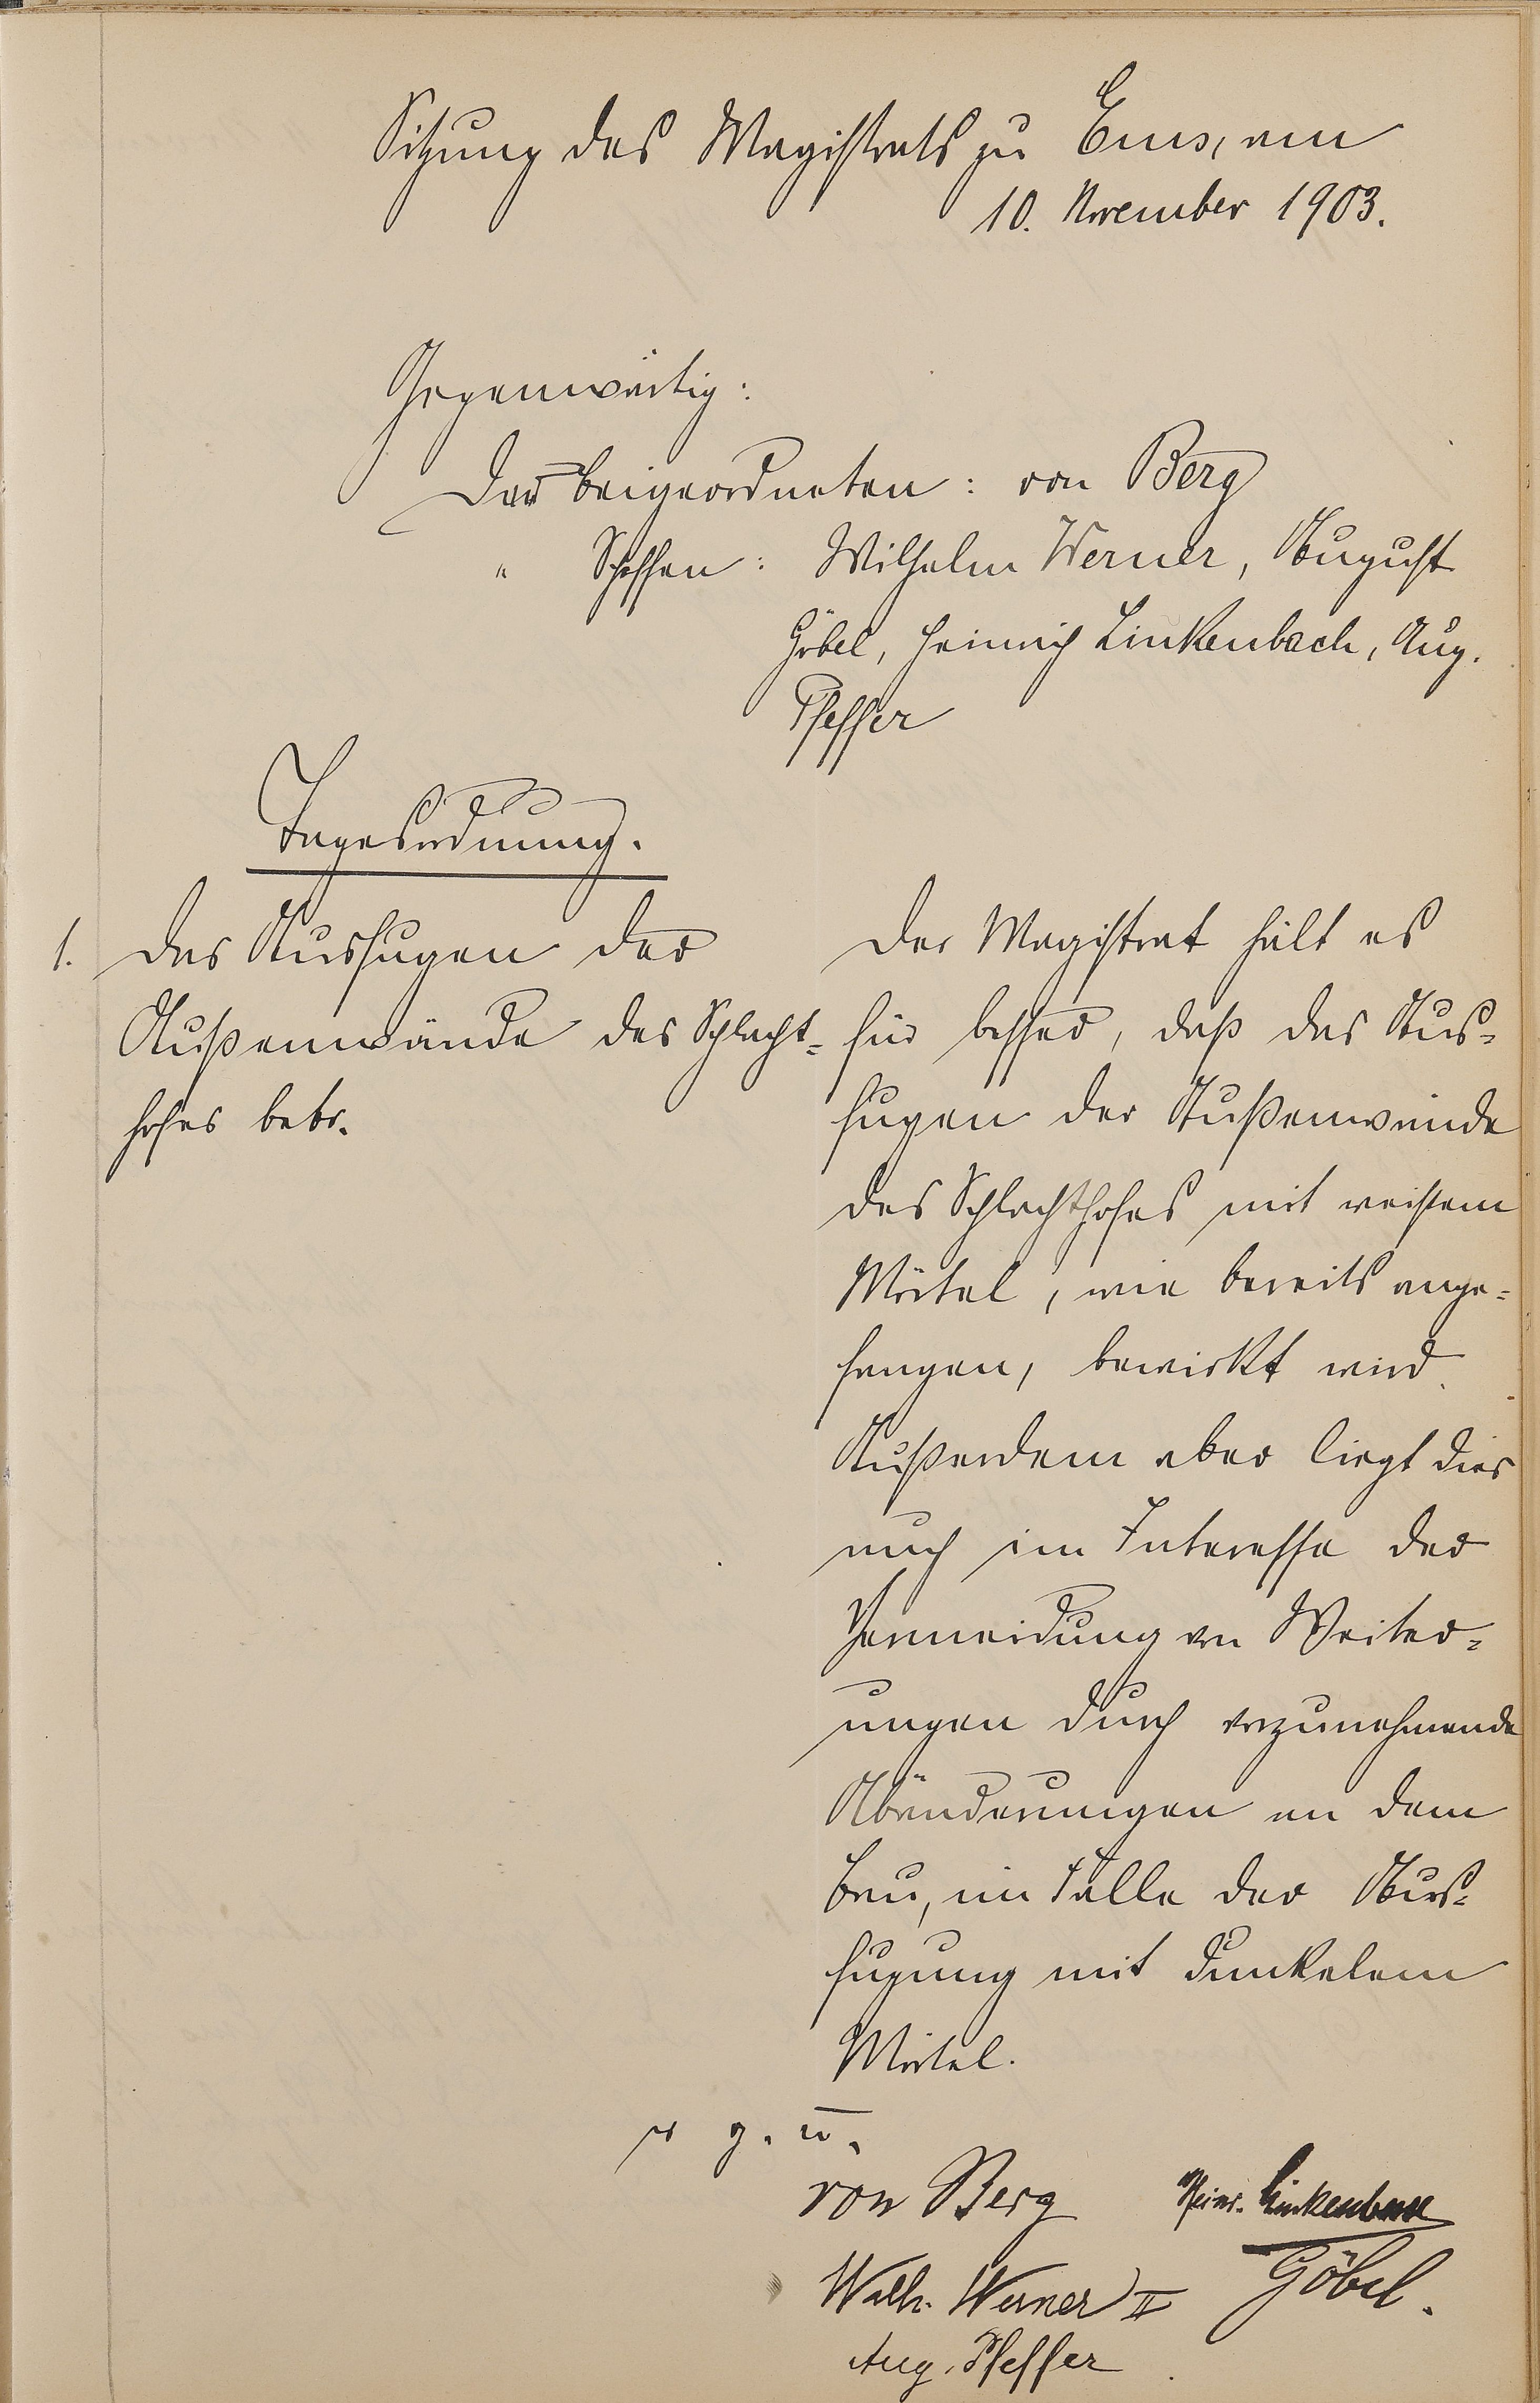 Sitzung des Magistrats zu Ems, am
10. November 1903.
Gegenwärtig:
Der Beigeordneten: von Berg
" Schöffen: Wilhelm Werner, August
Göbel, Heinrich Linkenbach, Aug.
Pfeffer
Tagesordnung.
1. Das Ausfugen der
Außenwände des Schlacht=
hofes betr.
Der Magistrat hält es
für besser, daß das Aus=
fugen der Außenwände
des Schlachthofes mit weißem
Mörtel, wie bereits ange=
fangen, bewirkt wird.
Außerdem aber liegt dies
auch im Interesse der
Vermeidung von Weiter=
ungen durch vorzunehmende
Abänderungen an dem
Bau, im Falle der Aus=
fugung mit dunkelem
Mörtel.
v. g. u.
von Berg Heinr. Linkenbach
Wilh. Werner II Göbel.
Aug. Pfeffer